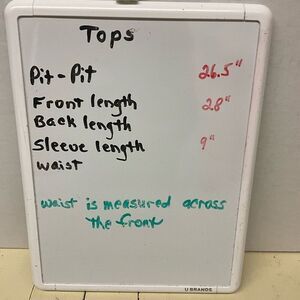 Tops
Pit-Pit 26.5"
Front length 28"
Back length
Sleeve length 9"
waist
waist is measured across
the front
U BRANDS